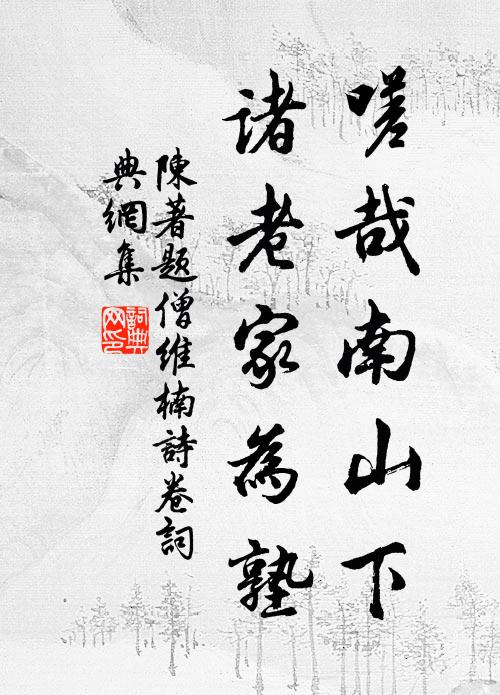 嗟哉南山下
諸老家為塾
陳著題僧維楠詩卷詞
典網集
詞典网印